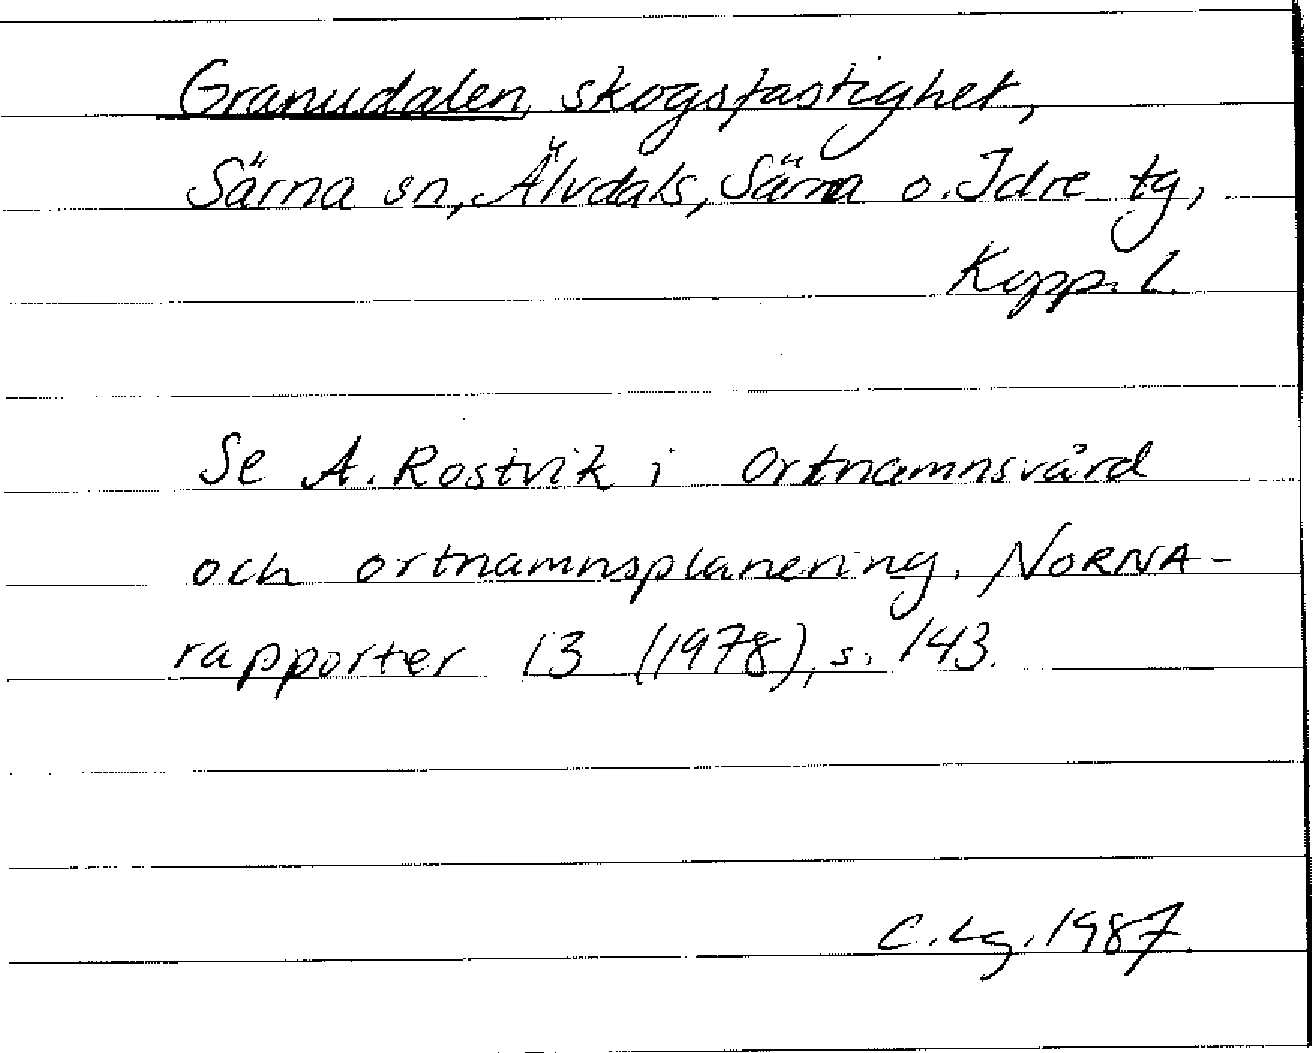 Granudalen, skogsfastighet,
Särna sn, Älvdals, Särna o. Idre tg,
Kopp. l.
Se A. Rostvik i Ortnamnsvård
och ortnamnsplanering. NORNA-
rapporter 13 (1978), s. 143.
C. Lg. 1987.